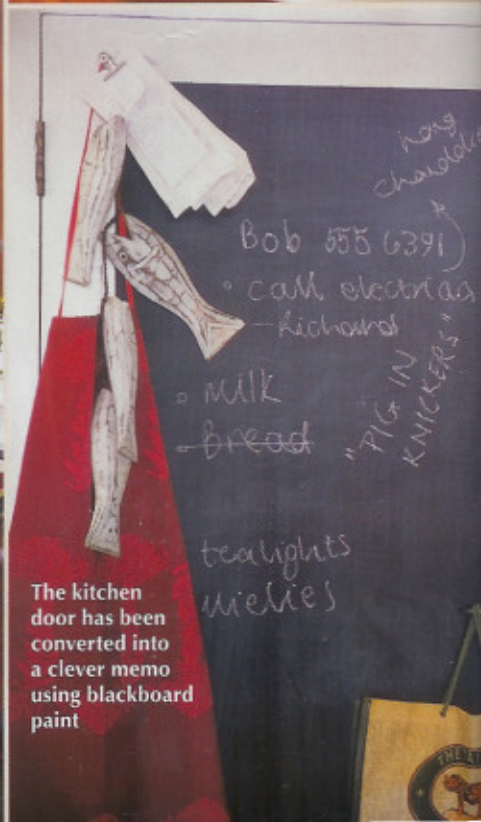 hang
Bob 555 6391
• call electrician
- Richard
• Milk
• Bread
"PIG IN
KNICKERS"
tealights
mielies
The kitchen
door has been
converted into
a clever memo
using blackboard
paint
THE